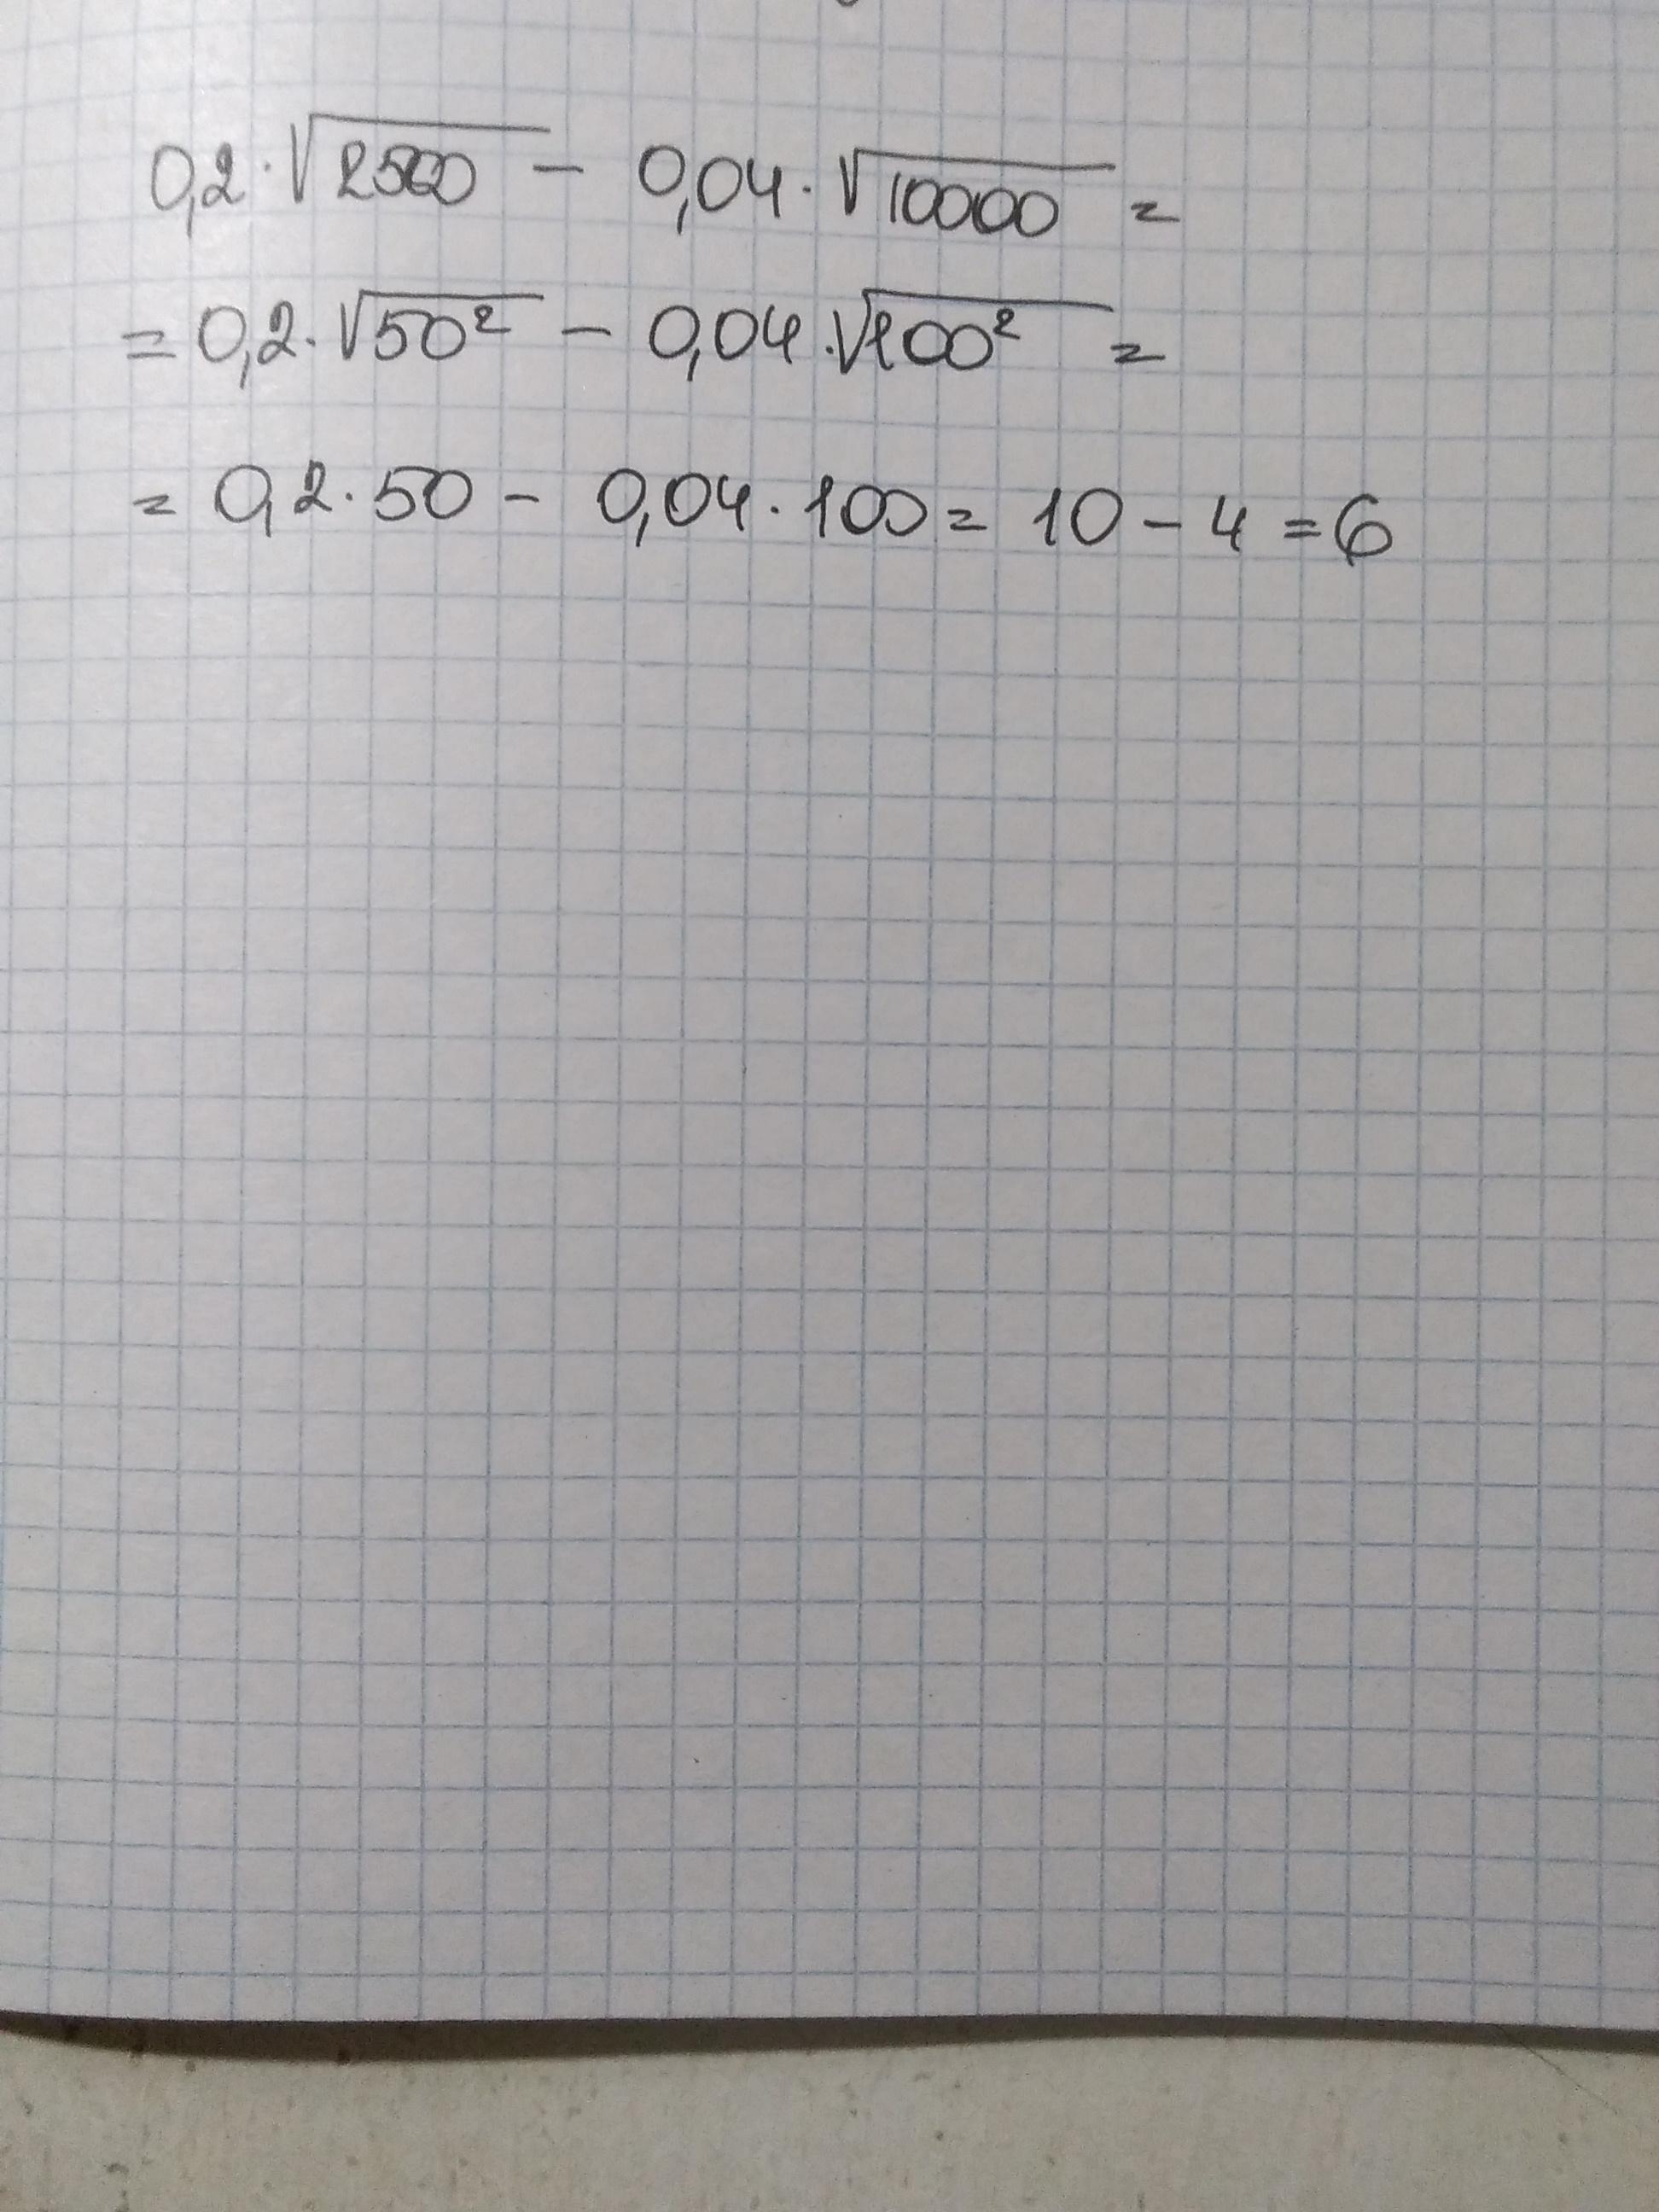 0,2·√2500 − 0,04·√10000 =
= 0,2·√50² − 0,04·√100² =
= 0,2·50 − 0,04·100 = 10 − 4 = 6